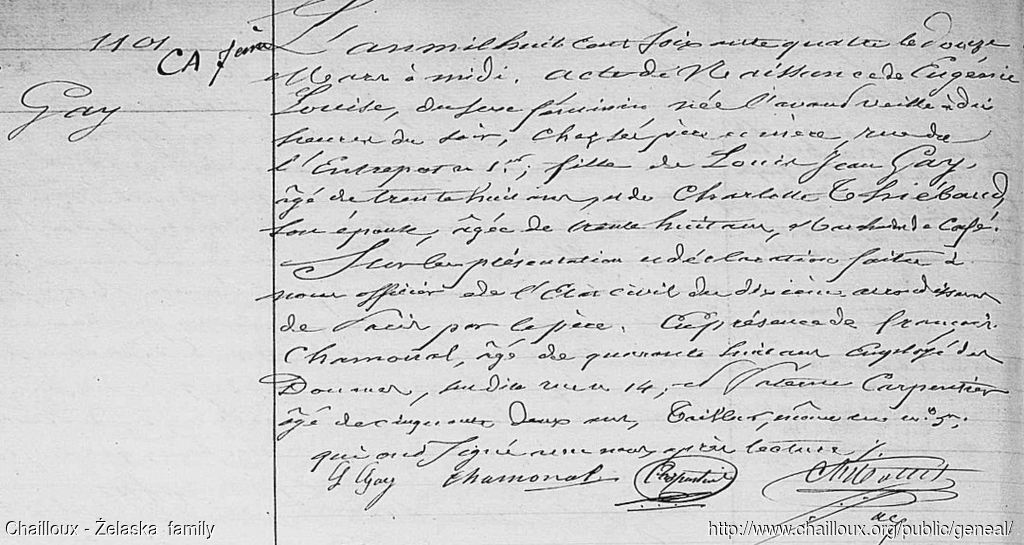 1101
CA
Gay
L'an mil huit cent soixante quatre le douze
Mars à midi. Acte de Naissance de Eugénie
Louise, du sexe féminin née l'avant veille à dix
heures du soir, chez ses père et mère, rue de
l'Entrepot n 1er; fille de Louis Jean Gay,
âgé de trente huit ans, et de Charlotte Thiébaud,
son épouse, âgée de trente huit ans, Marchands de Café.
Sur la présentation et déclaration faite à
nous officier de l'Etat civil du dixième arrondissement
de Paris par le père. En présence de François
Chamonal, âgé de quarante huit ans Employé des
Douanes, susdite rue n 14, et Carpentier
âgé de cinquante deux ans, Tailleur, même rue no 5,
qui ont signé avec nous après lecture
L Gay Chamonal Carpentier
Chailloux - Żelaska family
http://www.chailloux.org/public/geneal/